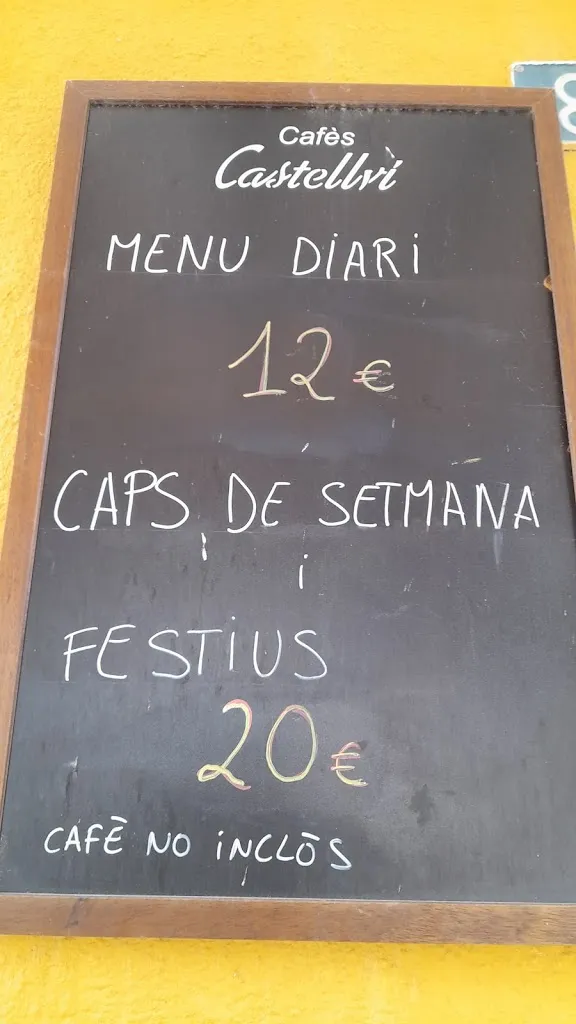 Cafès
Castellví
MENU DIARI
12 €
CAPS DE SETMANA
i
FESTIUS
20 €
CAFÈ NO INCLÒS
8